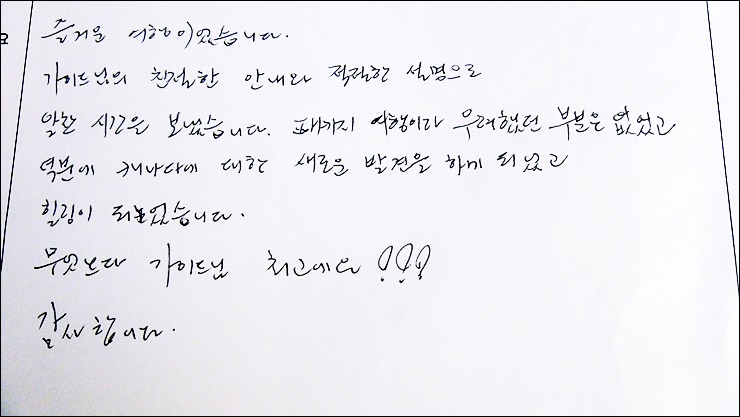 즐거운 여행이었습니다.
가이드님의 친절한 안내와 적절한 설명으로
알찬 시간을 보냈습니다. 패키지 여행이라 우려했던 부분은 없었고
덕분에 캐나다에 대한 새로운 발견을 하게 되었고
힐링이 되었습니다.
무엇보다 가이드님 최고예요 !!!
감사합니다.